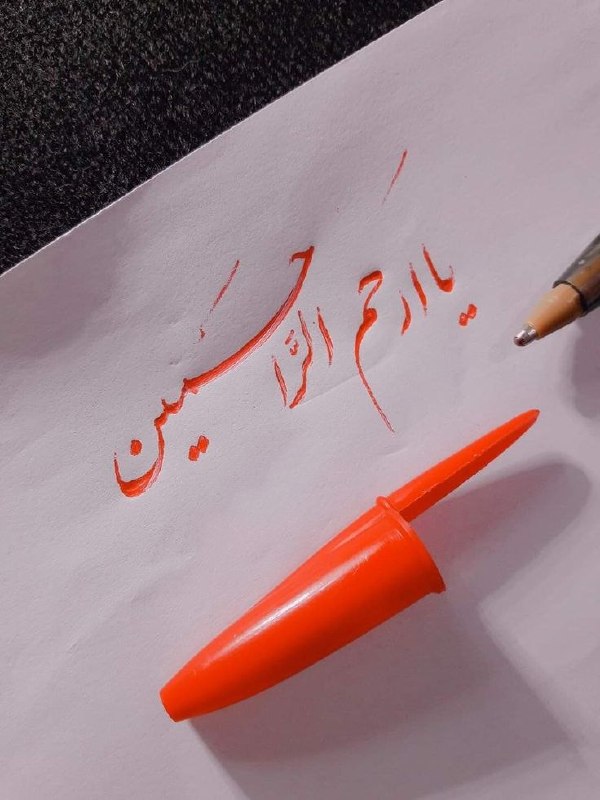 یا ارحَم الرّاحَمین